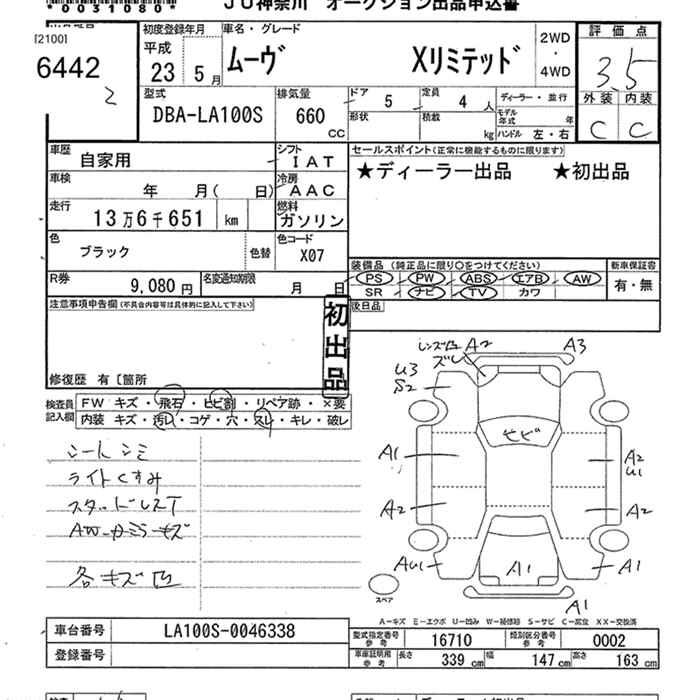 *0031080*
JU神奈川 オークション出品申込書
[2100]
6442
2
初度登録年月
平成 23 5月
車名・グレード
ムーヴ Xリミテッド
2WD
・
4WD
評価点
3.5
外装 内装
C C
型式
DBA-LA100S
排気量
660 CC
ドア 5
定員 4 人
形状
積載 kg
ディーラー・並行
モデル年式 年
ハンドル 左・右
車歴 自家用
シフト IAT
車検 年 月( 日)
冷房 AAC
走行 13万6千651 km
燃料 ガソリン
色 ブラック
色替
色コード X07
R券 9,080円
名変通知期限 月 日
セールスポイント(正常に機能するものに限ります)
★ディーラー出品 ★初出品
装備品 (純正品に限り○をつけてください)
PS PW ABS エアB AW
SR ナビ TV カワ
新車保証書
有・無
後日品
注意事項申告欄(不具合内容等は具体的に記入して下さい)
初出品
修復歴 有 [箇所
検査員記入欄
FW キズ・飛石・ヒビ割・リペア跡・×要
内装 キズ・汚レ・コゲ・穴・スレ・キレ・破レ
シートシミ
ライトくすみ
スタッドレスT
各キズ凹
A2 A3
ズレ
U3
S2
A1
A2
U1
A2
A2
AU1
A1
A1
A1
スペア
A-キズ E-エクボ U-凹み W-補修跡 S-サビ C-腐食 XX-交換済
車台番号 LA100S-0046338
登録番号
型式指定番号 参考 16710
類別区分番号 参考 0002
車庫証明用 参考 長さ 339 cm 幅 147 cm 高さ 163 cm